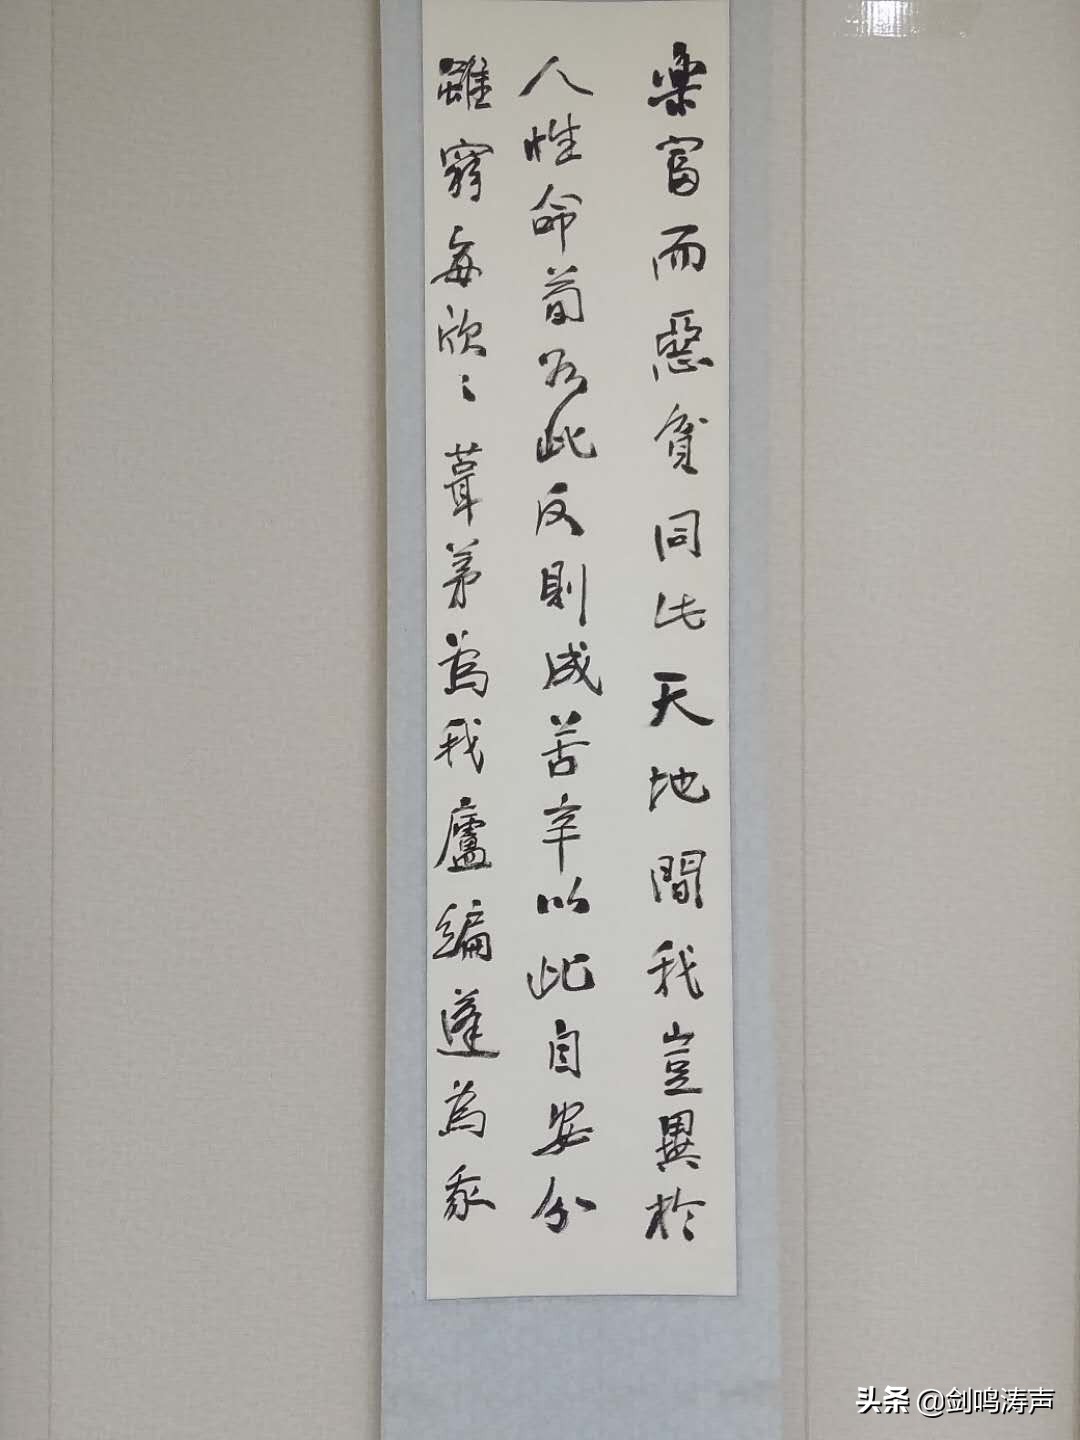 樂富而惡貧同此天地間我豈異於
人性命苟如此反則成苦辛以此自安分
雖窮每欣々葺茅為我廬編蓬為我
头条 @剑鸣涛声